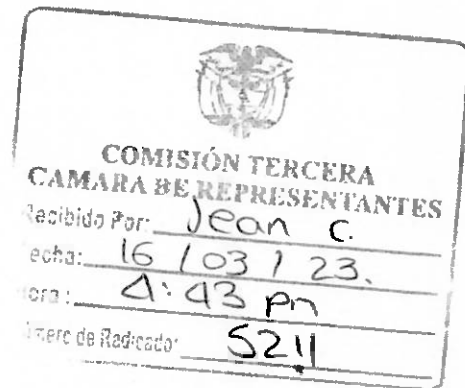 COMISIÓN TERCERA
CAMARA DE REPRESENTANTES
Recibido Por: Jean C.
echa: 16 / 03 / 23.
ora: 4:43 pm
Número de Radicado: 5211